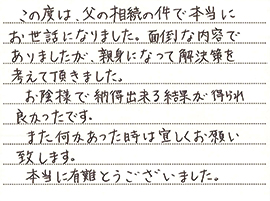 この度は、父の相続の件で本当に
お世話になりました。面倒な内容で
ありましたが、親身になって解決策を
考えて頂きました。
お陰様で納得出来る結果が得られ
良かったです。
また何かあった時は宜しくお願い
致します。
本当に有難とうございました。